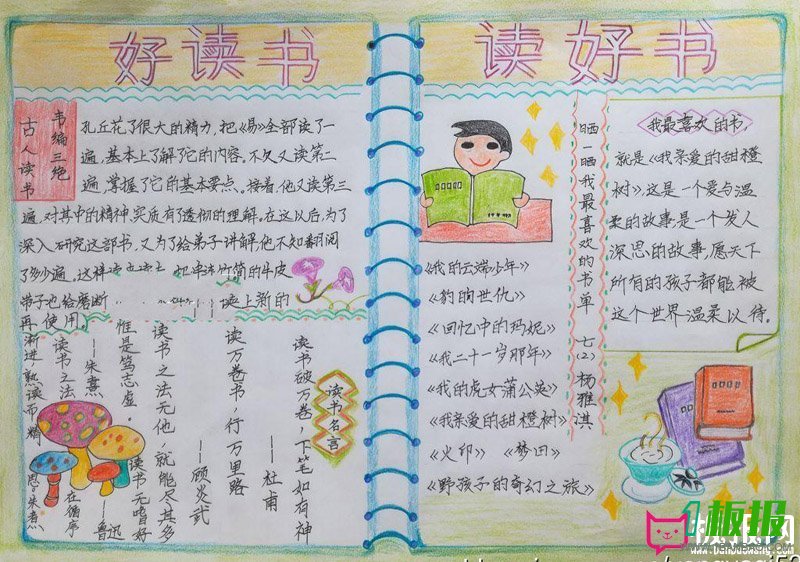 好读书
读好书
韦编三绝
古人读书
孔丘花了很大的精力,把《易》全部读了一
遍,基本上了解了它的内容。不久又读第二
遍,掌握了它的基本要点。接着,他又读第三
遍,对其中的精神、实质有了透彻的理解。在这以后,为了
深入研究这部书,又为了给弟子讲解,他不知翻阅
了多少遍。这样读
把串连竹简的牛皮
带子也给磨断
换上新的
再使用。
读书名言
读书破万卷,下笔如有神
——杜甫
读万卷书,行万里路
——顾炎武
读书之法无他,就能尽其多
惟是笃志虚。
——朱熹
读书无嗜好
——鲁迅
读书之法
在循序
渐进,熟读而精
思。朱熹
《我的云端少年》
《豹的世仇》
《回忆中的玛妮》
《我二十一岁那年》
《我的虎女蒲公英》
《我亲爱的甜橙树》
《火印》 《梦田》
《野孩子的奇幻之旅》
晒一晒我最喜欢的书单
七(2) 杨雅淇
我最喜欢的书,
就是《我亲爱的甜橙
树》,这是一个爱与温
柔的故事,是一个发人
深思的故事,愿天下
所有的孩子都能被
这个世界温柔以待。
板报网
www.banbaowang.com